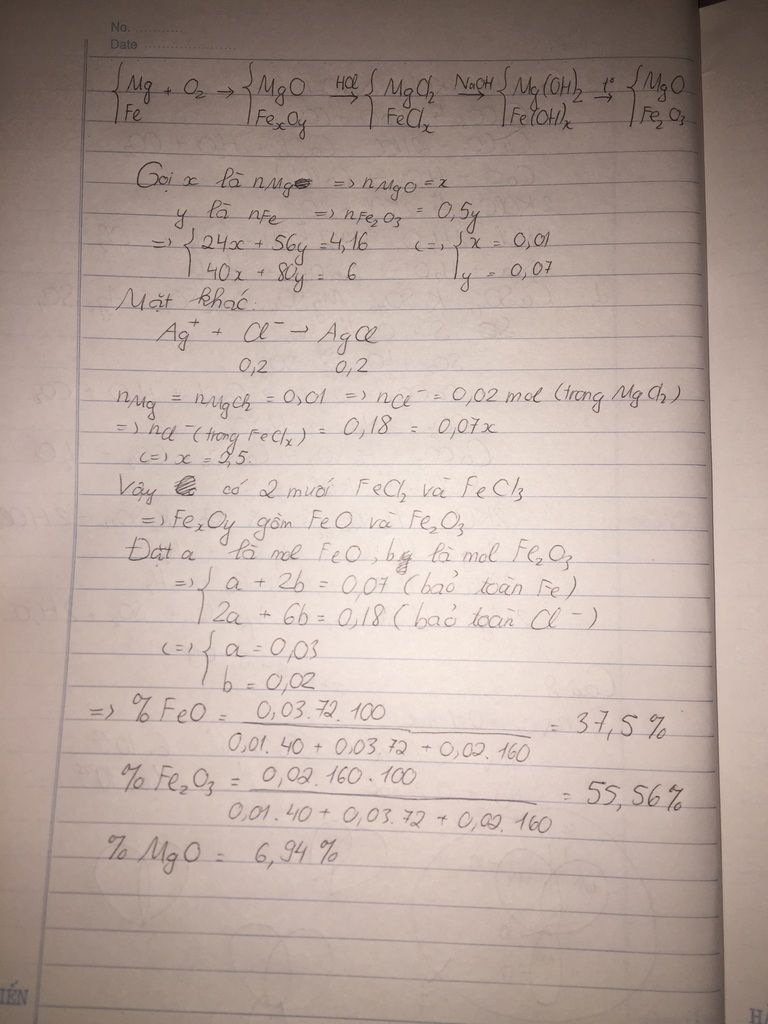 No. ............
Date ........................
{Mg + O₂ → {MgO HCl→ {MgCl₂ NaOH→ {Mg(OH)₂ t°→ {MgO
Fe FexOy FeClx Fe(OH)x Fe₂O₃
Gọi x là nMg => nMgO = x
y là nFe => nFe₂O₃ = 0,5y
=> {24x + 56y = 4,16 <=> {x = 0,01
40x + 80y = 6 y = 0,07
Mặt khác:
Ag⁺ + Cl⁻ → AgCl
0,2 0,2
nMg = nMgCl₂ = 0,01 => nCl⁻ = 0,02 mol (trong MgCl₂)
=> nCl⁻ (trong FeClx) = 0,18 = 0,07x
<=> x = 2,5.
Vậy có 2 muối FeCl₂ và FeCl₃
=> FexOy gồm FeO và Fe₂O₃
Đặt a là mol FeO, b là mol Fe₂O₃
=> {a + 2b = 0,07 (bảo toàn Fe)
2a + 6b = 0,18 (bảo toàn Cl⁻)
<=> {a = 0,03
b = 0,02
=> % FeO = 0,03.72.100 = 37,5 %
0,01.40 + 0,03.72 + 0,02.160
% Fe₂O₃ = 0,02.160.100 = 55,56 %
0,01.40 + 0,03.72 + 0,02.160
% MgO = 6,94 %
IẾN
H